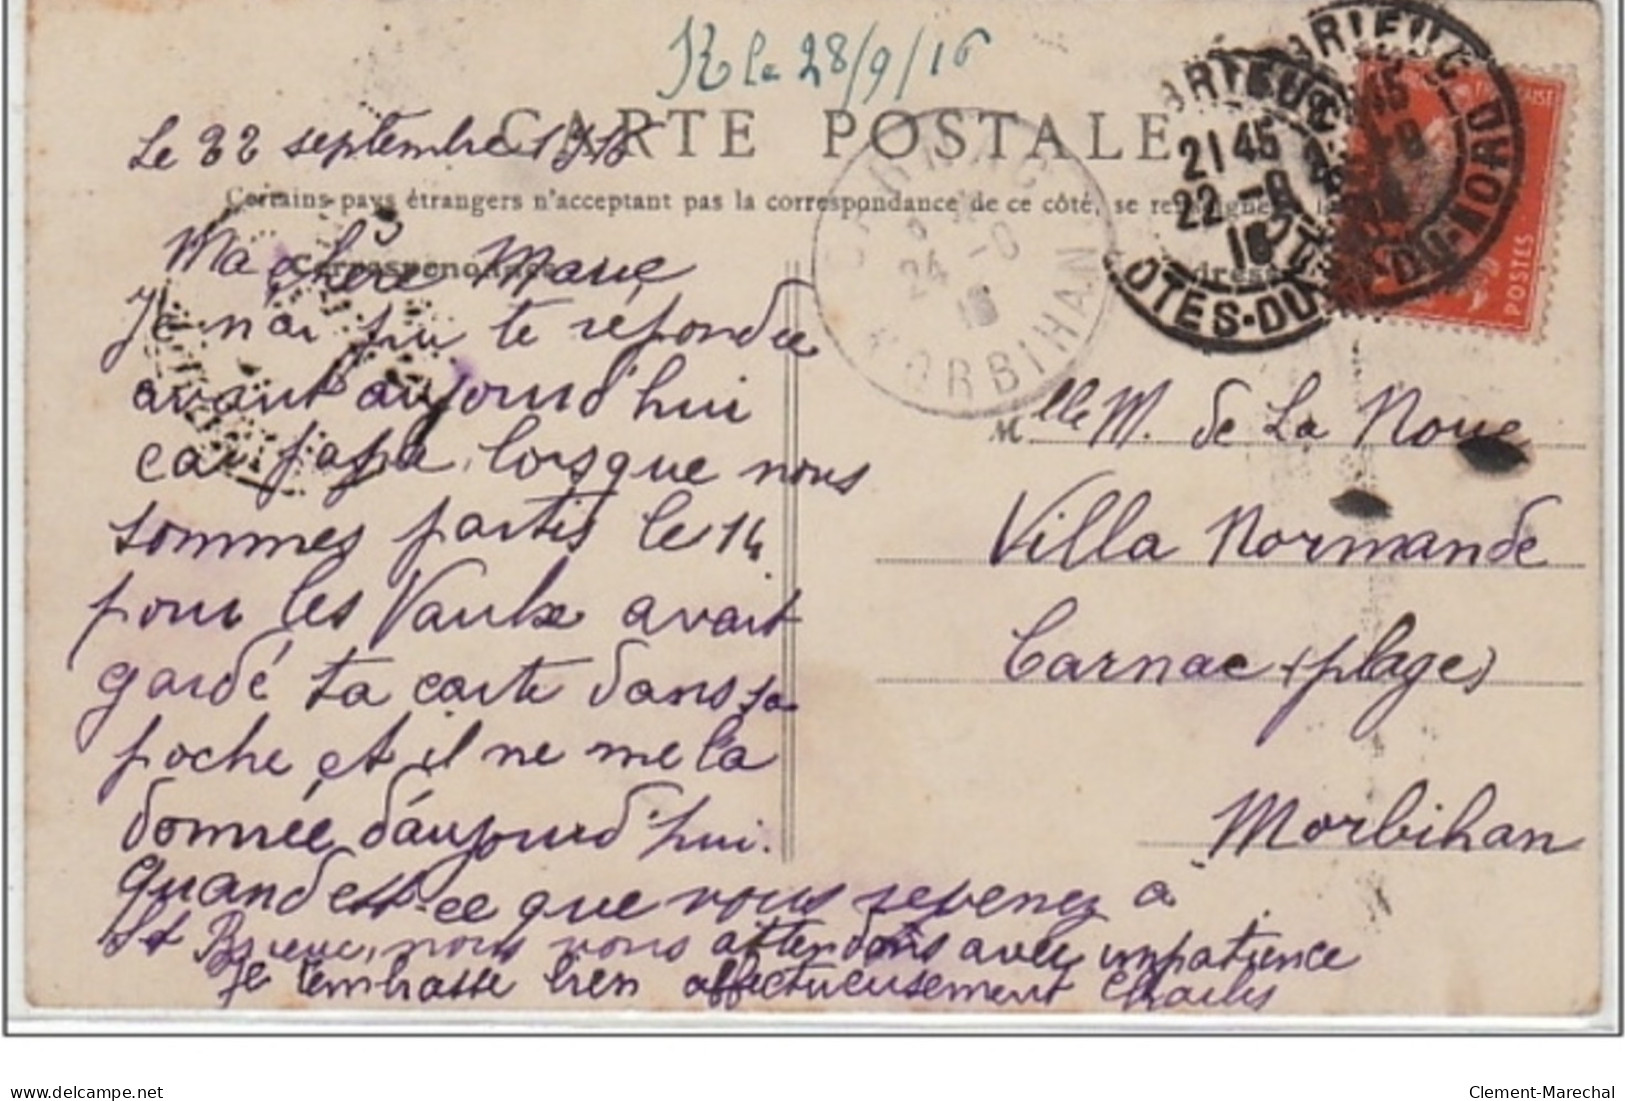 R le 28/9/16
CARTE POSTALE
Le 22 septembre 1916
Certains pays étrangers n'acceptant pas la correspondance de ce côté, se
Correspondance
Ma chère Marie
Je n'ai pu te répondre
avant aujourd'hui
car papa, lorsque nous
sommes partis le 14
pour les Vaulx avait
gardé ta carte dans sa
poche et il ne me l'a
donnée d'aujourd'hui.
Quand est-ce que vous revenez à
St Brieuc, nous vous attendons avec impatience
Je t'embrasse bien affectueusement Charles
BRIEUC
21 45
22 -9
16
COTES-DU-NORD
CARNAC
24 -9
16
MORBIHAN
POSTES
Adresse
Mlle M. de La Noue
Villa Normande
Carnac (plage)
Morbihan
delcampe.net
Clement-Marechal